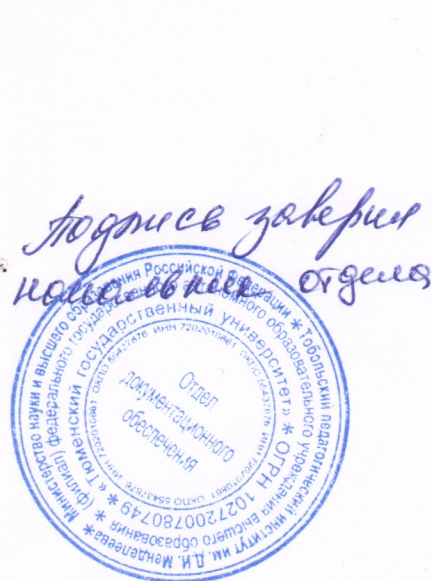 Подпись заверил
начальник отдела
Министерство науки и высшего образования Российской Федерации * Тобольский педагогический институт им. Д.И. Менделеева *
(филиал) федерального государственного автономного образовательного учреждения высшего образования *
«Тюменский государственный университет» * ОГРН 1027200780749 *
ОКПО 55437676 ИНН 7202010861 ОКПО 55437676 ИНН 7202010861 ОКПО 55437676 ИНН 7202010861
Отдел
документационного
обеспечения